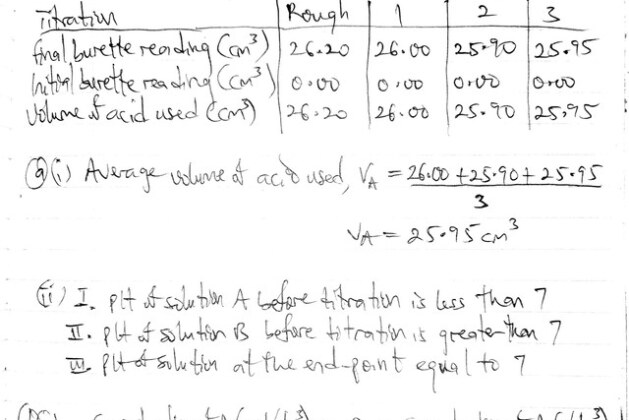 Titration Rough 1 2 3
final burette reading (cm³) 26.20 26.00 25.90 25.95
Initial burette reading (cm³) 0.00 0.00 0.00 0.00
Volume of acid used (cm³) 26.20 26.00 25.90 25.95
(a)(i) Average volume of acid used, VA = 26.00 + 25.90 + 25.95
3
VA = 25.95 cm³
(ii) I. pH of solution A before titration is less than 7
II. pH of solution B before titration is greater than 7
III. pH of solution at the end-point equal to 7